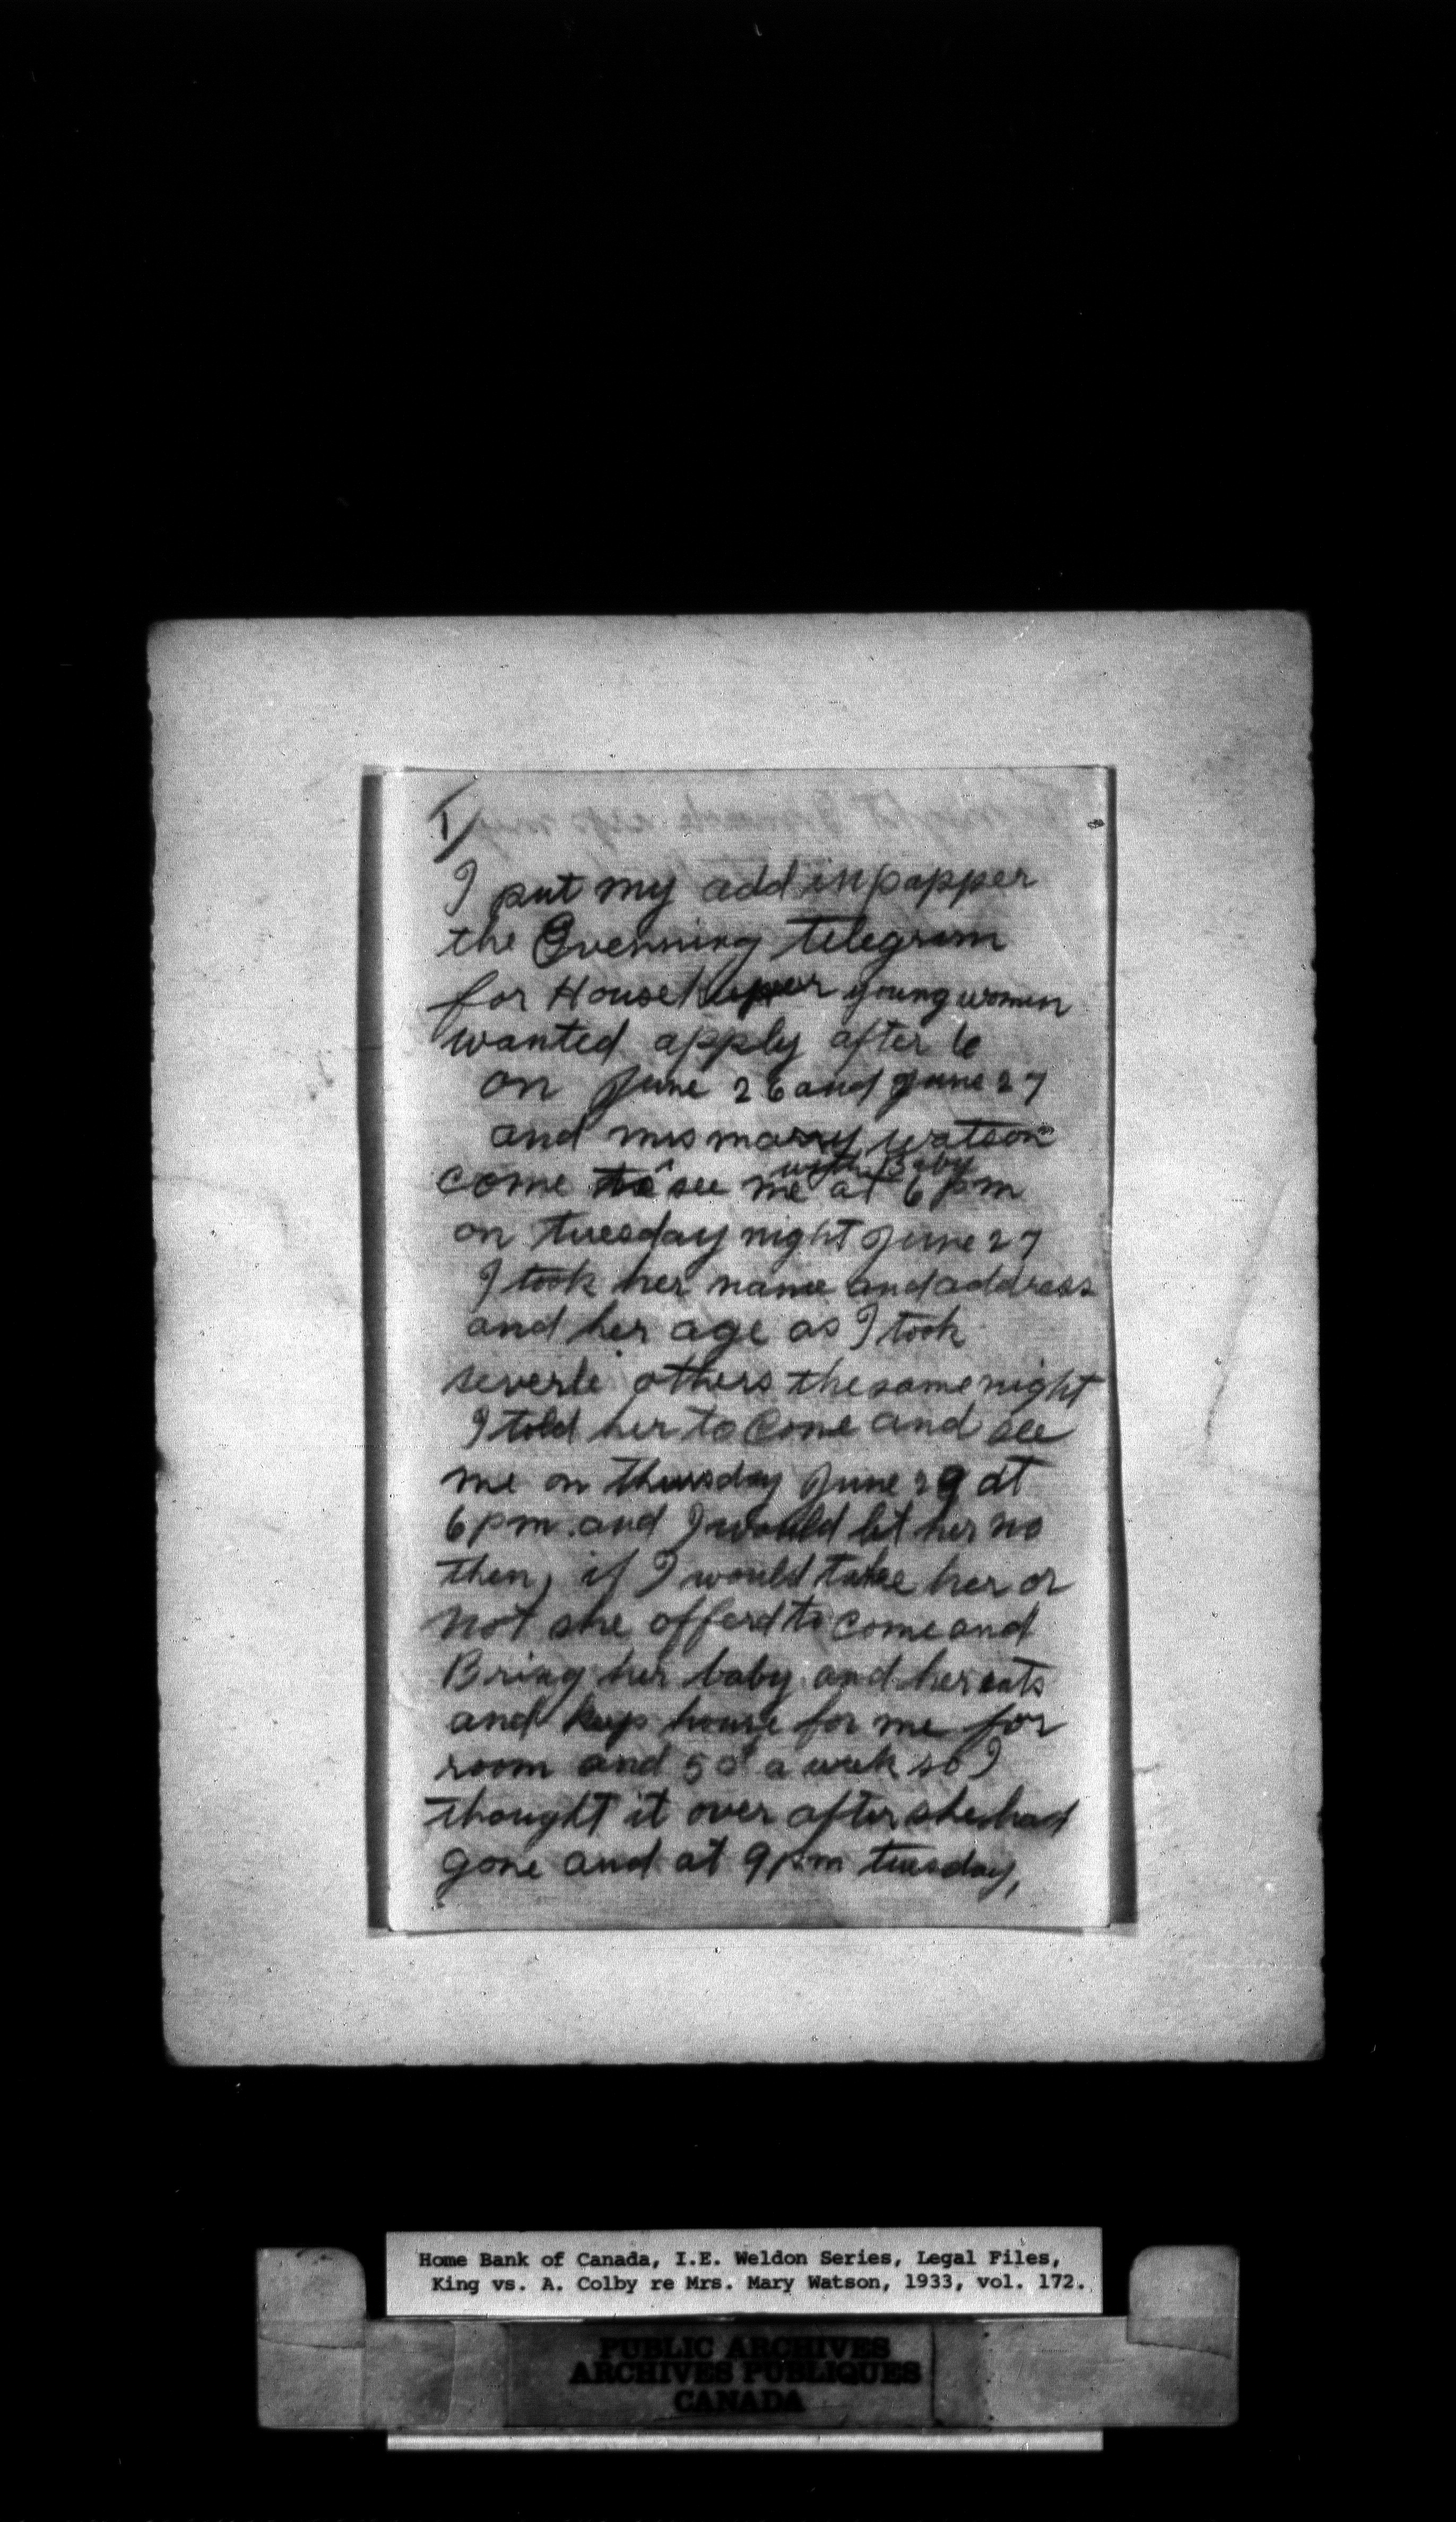 1/
I put my add in papper
the Evenning telegram
for Housekeper young women
wanted apply after 6
on June 26 and June 27
and mrs marry watson
come to see me with Baby at 6 pm
on tuesday night June 27
I took her name and address
and her age as I took
severle others the same night
I told her to Come and see
me on thursday June 29 at
6 pm. and I would let her no
then, if I would take her or
not sheofferd to come and
Bring her baby and her cats
and keep house for me for
room and 50¢ a week so I
thought it over after she had
gone and at 9 pm tuesday,
Home Bank of Canada, I.E. Weldon Series, Legal Files,
King vs. A. Colby re Mrs. Mary Watson, 1933, vol. 172.
PUBLIC ARCHIVES
ARCHIVES PUBLIQUES
CANADA